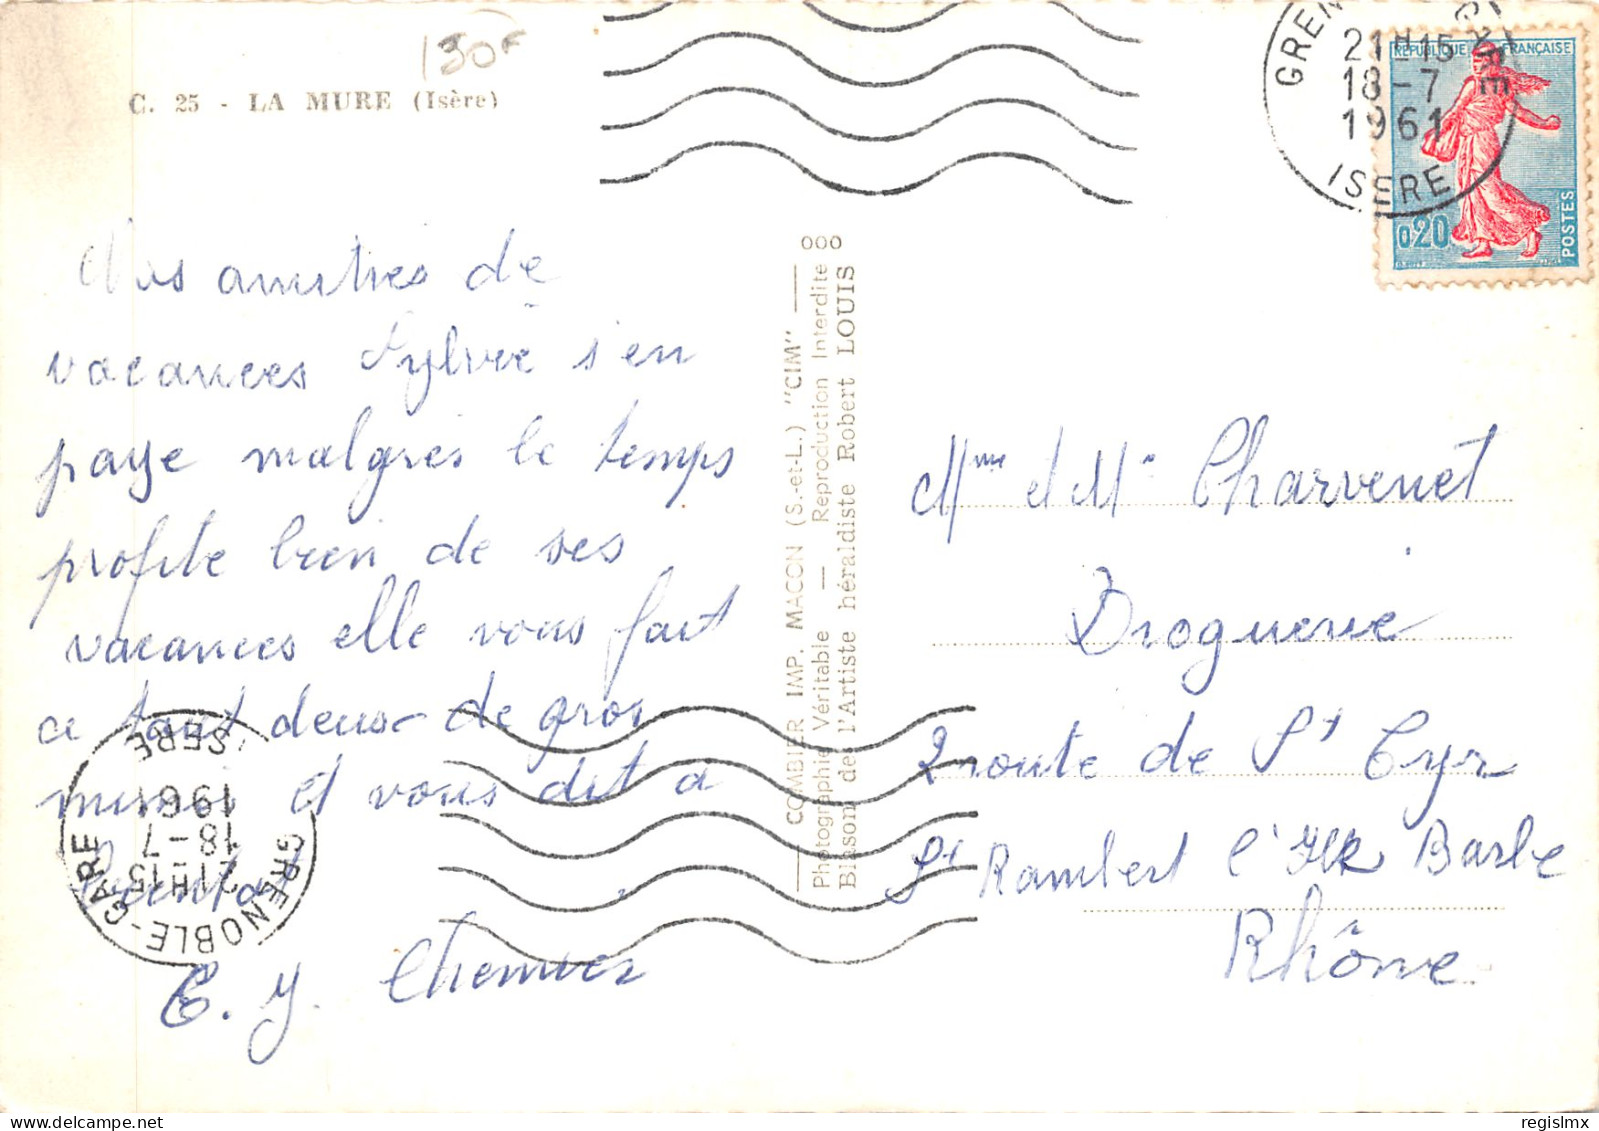 130F
C. 25 - LA MURE (Isère)
Nos amitiés de
vacances Sylvie s'en
paye malgrès le temps
profite bien de ses
vacances elle vous fait
a tout deux de gros
mimi et vous dit à
E. Y.
000
COMBIER IMP. MACON (S.-et-L.) "CIM"
Photographie Véritable — Reproduction Interdite
Blason de l'Artiste héraldiste Robert LOUIS
GRENOBLE-GARE
21H15
18-7
1961
ISERE
RÉPUBLIQUE FRANÇAISE
0,20
POSTES
Mme et Mr Charvenet
Droguerie
2 route de St Cyr
St Rambert l'Ile Barbe
Rhône
GRENOBLE-GARE
21H15
18-7
1961
ISERE
regislmx